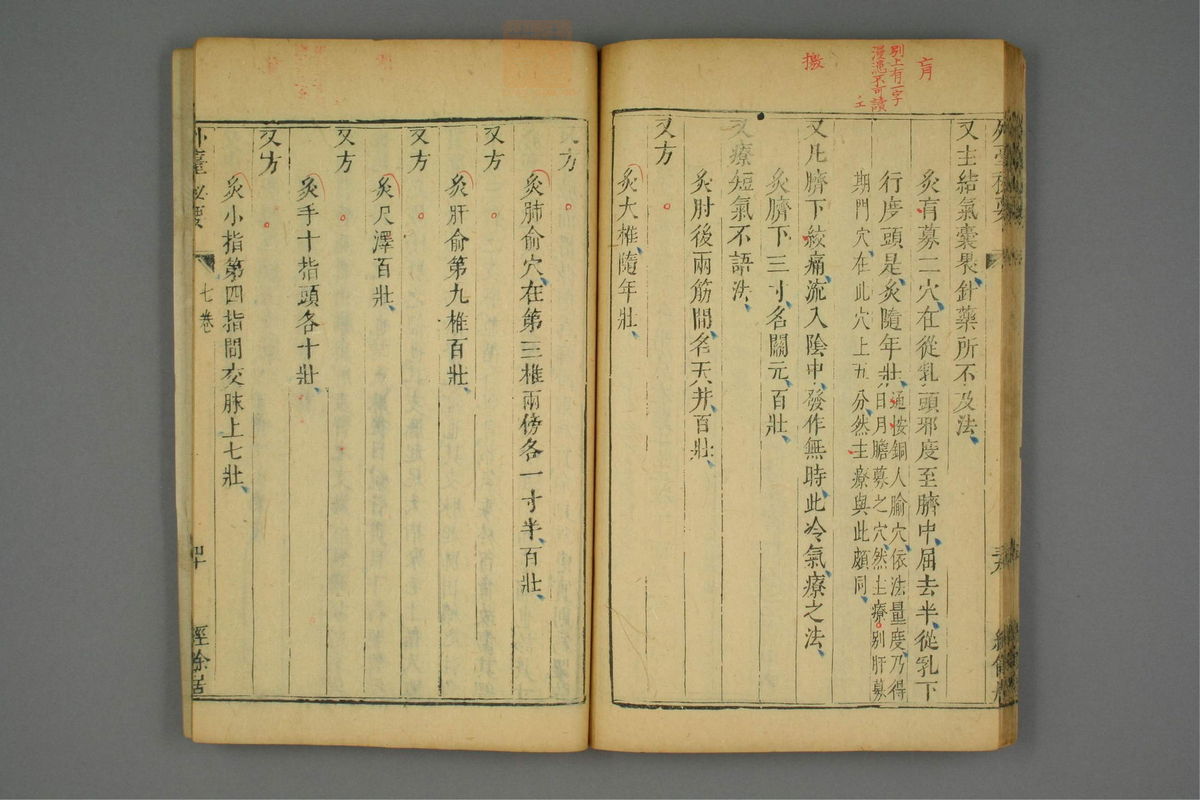 肓
別上有一字
漫漶不可讀
撥
又主結氣囊畏針藥所不及法
灸肓募二穴在從乳頭邪度至臍中屈去半從乳下
行度頭是灸隨年壯通按銅人腧穴依法量度乃得
日月膽募之穴然主療別肝募
期門穴在此穴上五分然主療與此頗同
又凡臍下絞痛流入陰中發作無時此冷氣療之法
灸臍下三寸名關元百壯
又療短氣不語法
灸肘後兩筋間名天井百壯
又方
灸大椎隨年壯
又方
灸肺俞穴在第三椎兩傍各一寸半百壯
又方
灸肝俞第九椎百壯
又方
灸尺澤百壯
又方
灸手十指頭各十壯
又方
灸小指第四指間交脉上七壯
外臺秘要
七卷
四十
經餘居